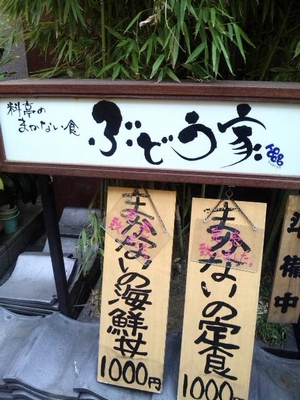 料亭の
まかない食
ぶどう家
まかないの海鮮丼
1000円
まかないの定食
1000円
準備中